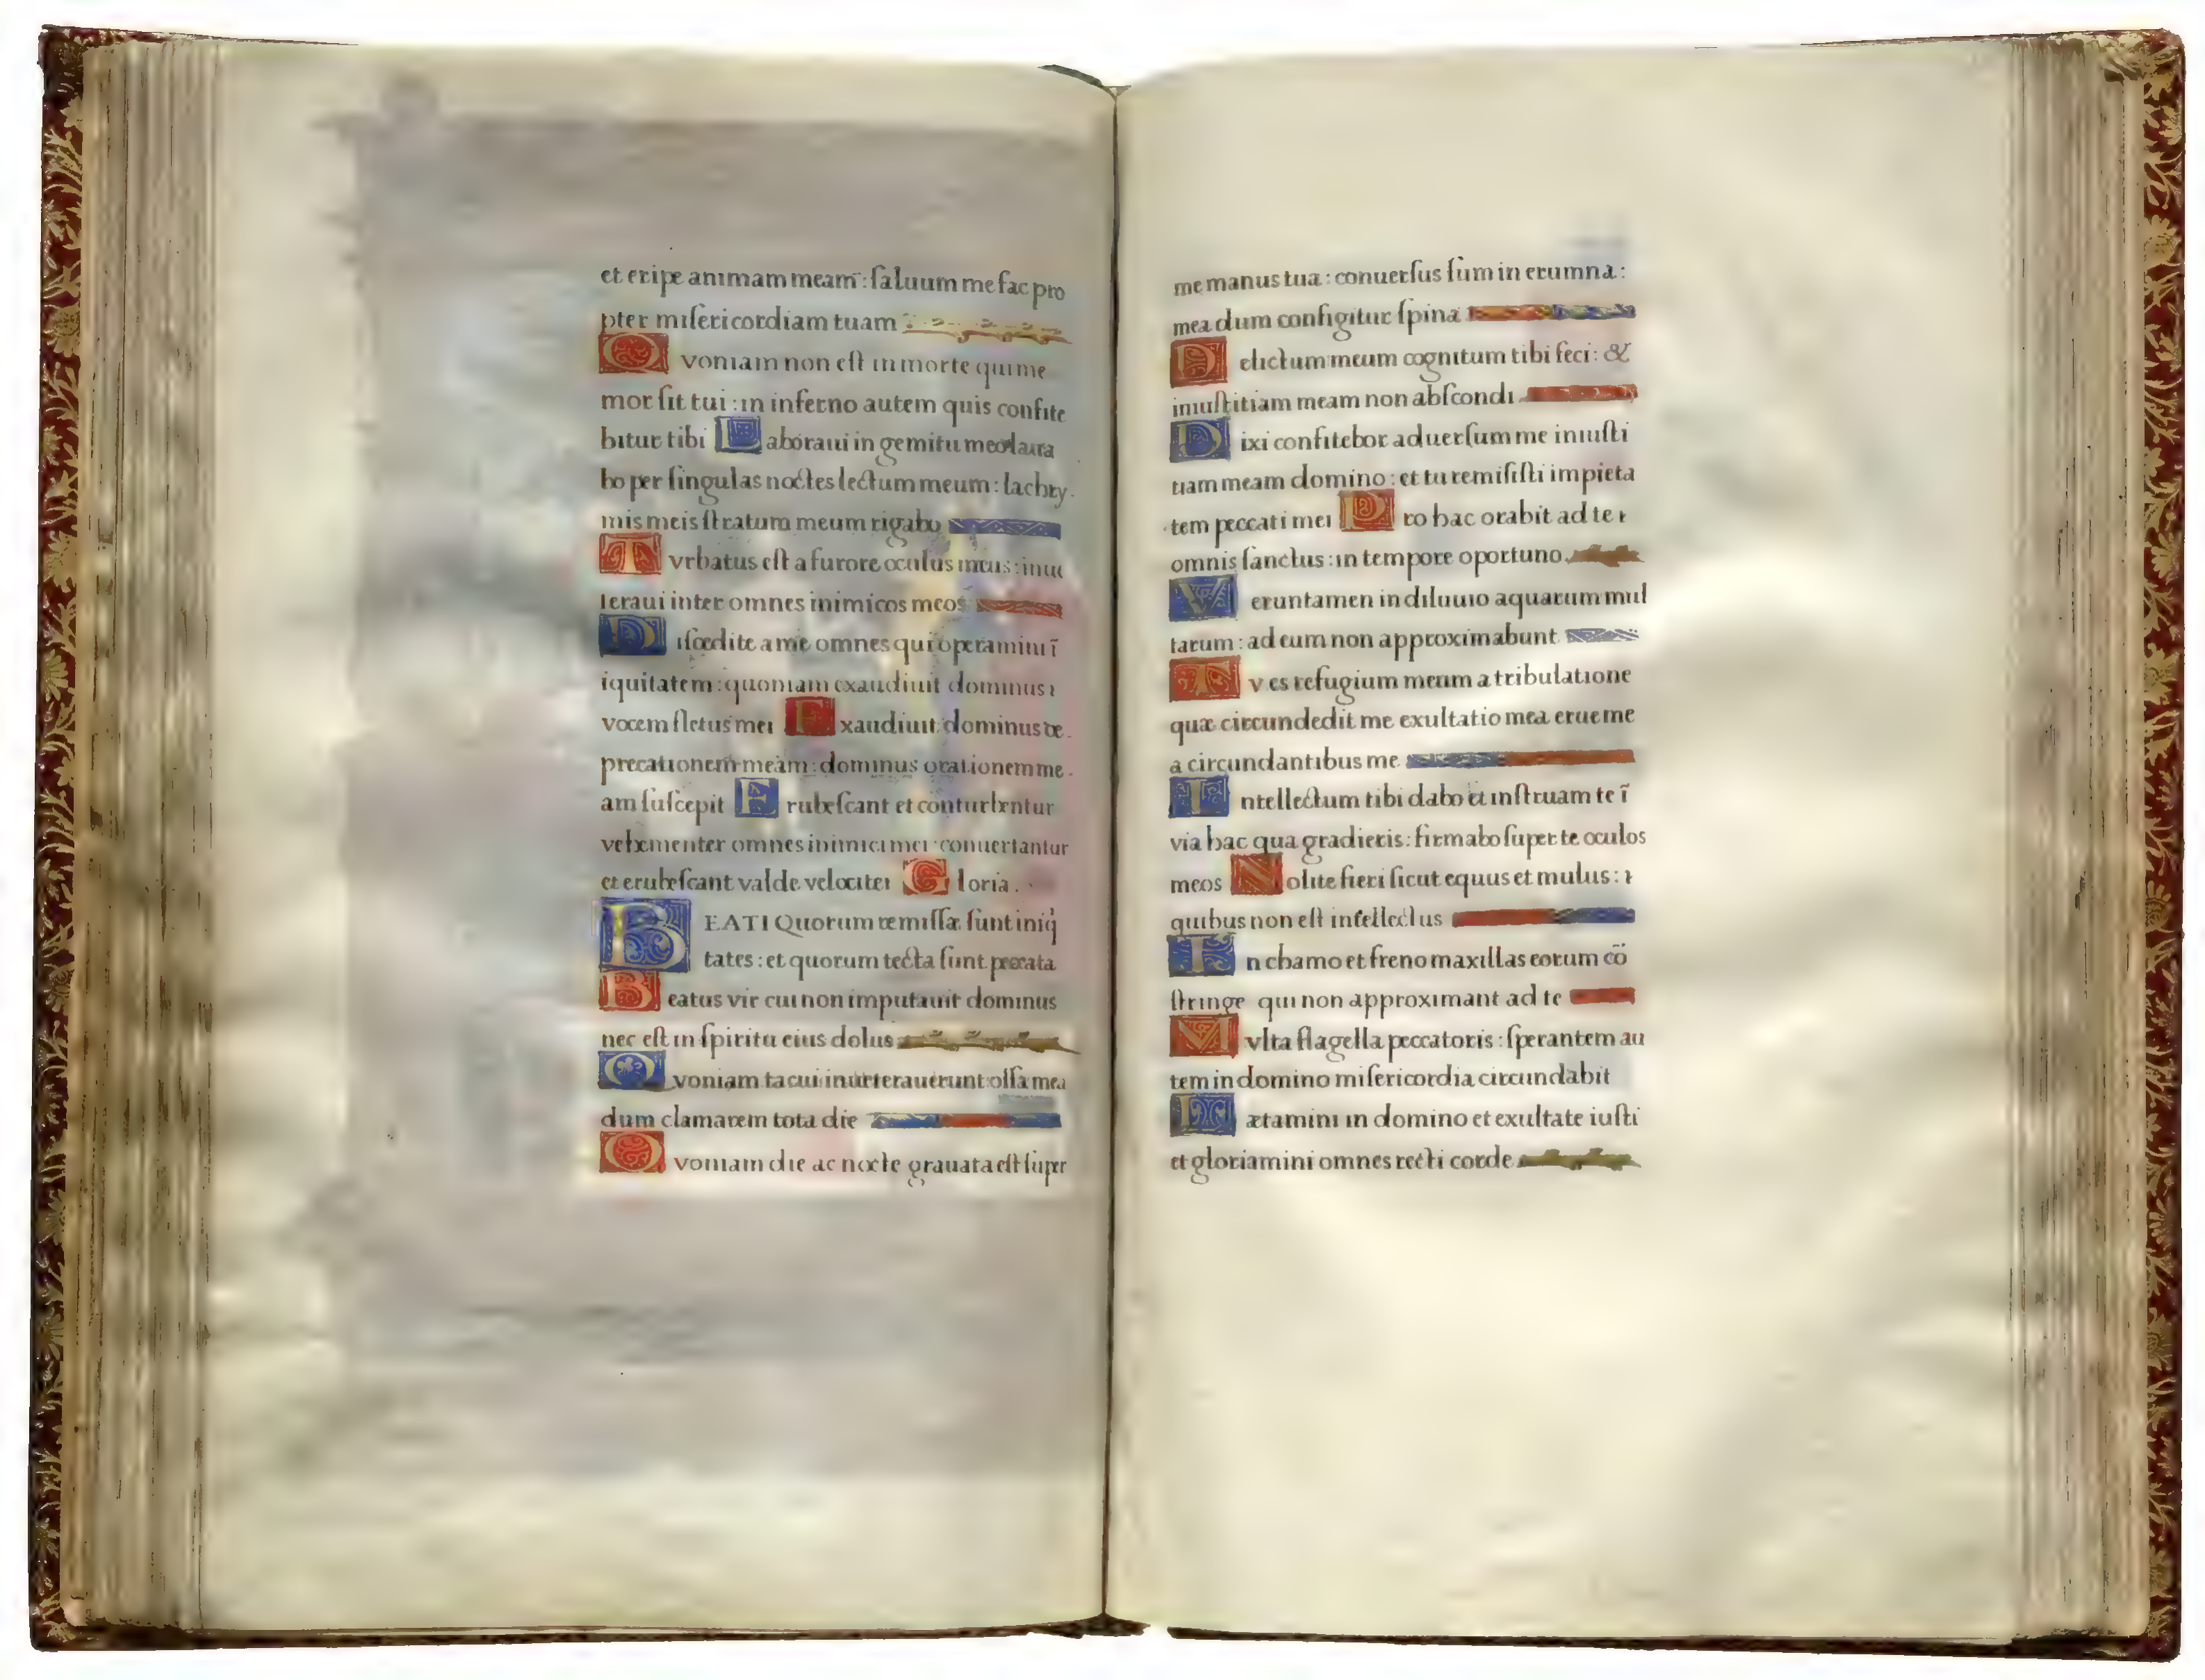 et eripe animam meam̄: ſaluum me fac pro
pter miſericordiam tuam
Qvoniam non eſt in morte qui me
mor ſit tui: in inferno autem quis confite
bitur tibi Laboraui in gemitu meo laua
bo per ſingulas noctes lectum meum: lachry
mis meis ſtratum meum rigabo
Tvrbatus eſt a furore oculus meus: inue
teraui inter omnes inimicos meos
Diſcedite a me omnes qui operamini ī
iquitatem: quoniam exaudiuit dominus
vocem fletus mei Exaudiuit dominus de
precationem meam: dominus orationem me
am ſuſcepit Erubeſcant et conturbentur
vehementer omnes inimici mei: conuertantur
et erubeſcant valde velociter Gloria.
BEATI Quorum remiſſæ ſunt iniq
tates: et quorum tecta ſunt peccata
Beatus vir cui non imputauit dominus
nec eſt in ſpiritu eius dolus
Qvoniam tacui inueterauerunt oſſa mea
dum clamarem tota die
Qvoniam die ac nocte grauata eſt ſuper
me manus tua: conuerſus ſum in erumna:
mea dum configitur ſpina
Delictum meum cognitum tibi feci: &
iniuſtitiam meam non abſcondi
Dixi confitebor aduerſum me iniuſti
tiam meam domino: et tu remiſiſti impieta
tem peccati mei Pro hac orabit ad te
omnis ſanctus: in tempore oportuno.
Veruntamen in diluuio aquarum mul
tarum: ad eum non approximabunt
Tv es refugium meum a tribulatione
quæ circundedit me exultatio mea erue me
a circundantibus me
Intellectum tibi dabo et inſtruam te ī
via hac qua gradieris: firmabo ſuper te oculos
meos Nolite fieri ſicut equus et mulus:
quibus non eſt intellectus
In chamo et freno maxillas eorum cō
ſtringe qui non approximant ad te
Mvlta flagella peccatoris: ſperantem au
tem in domino miſericordia circundabit
Lætamini in domino et exultate iuſti
et gloriamini omnes recti corde